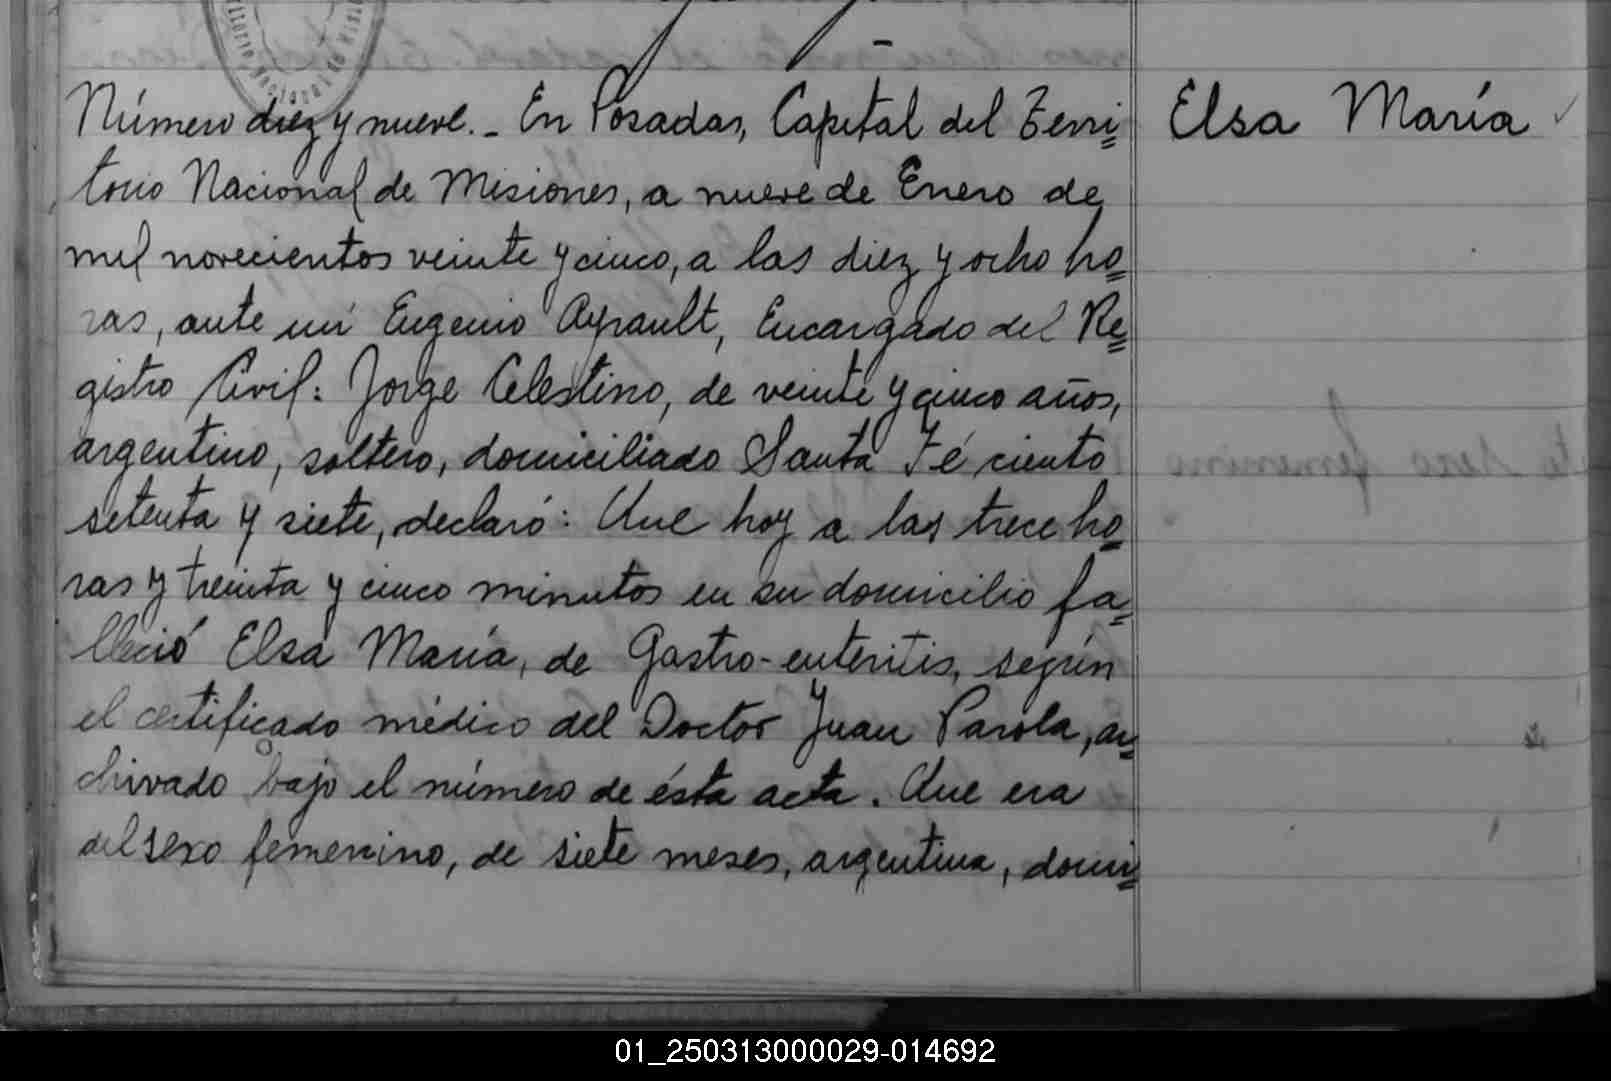 Número diez y nueve. - En Posadas, Capital del Terri= Elsa María
torio Nacional de Misiones, a nueve de Enero de
mil novecientos veinte y cinco, a las diez y ocho ho=
ras, ante mí Eugenio Ayrault, Encargado del Re=
gistro Civil: Jorge Celestino, de veinte y cinco años,
argentino, soltero, domiciliado Santa Fé ciento
setenta y siete, declaró: Que hoy a las trece ho=
ras y treinta y cinco minutos en su domicilio fa=
lleció Elsa María, de Gastro-enteritis, según
el certificado médico del Doctor Juan Parola, ar=
chivado bajo el número de ésta acta. Que era
del sexo femenino, de siete meses, argentina, domi=
01_250313000029-014692